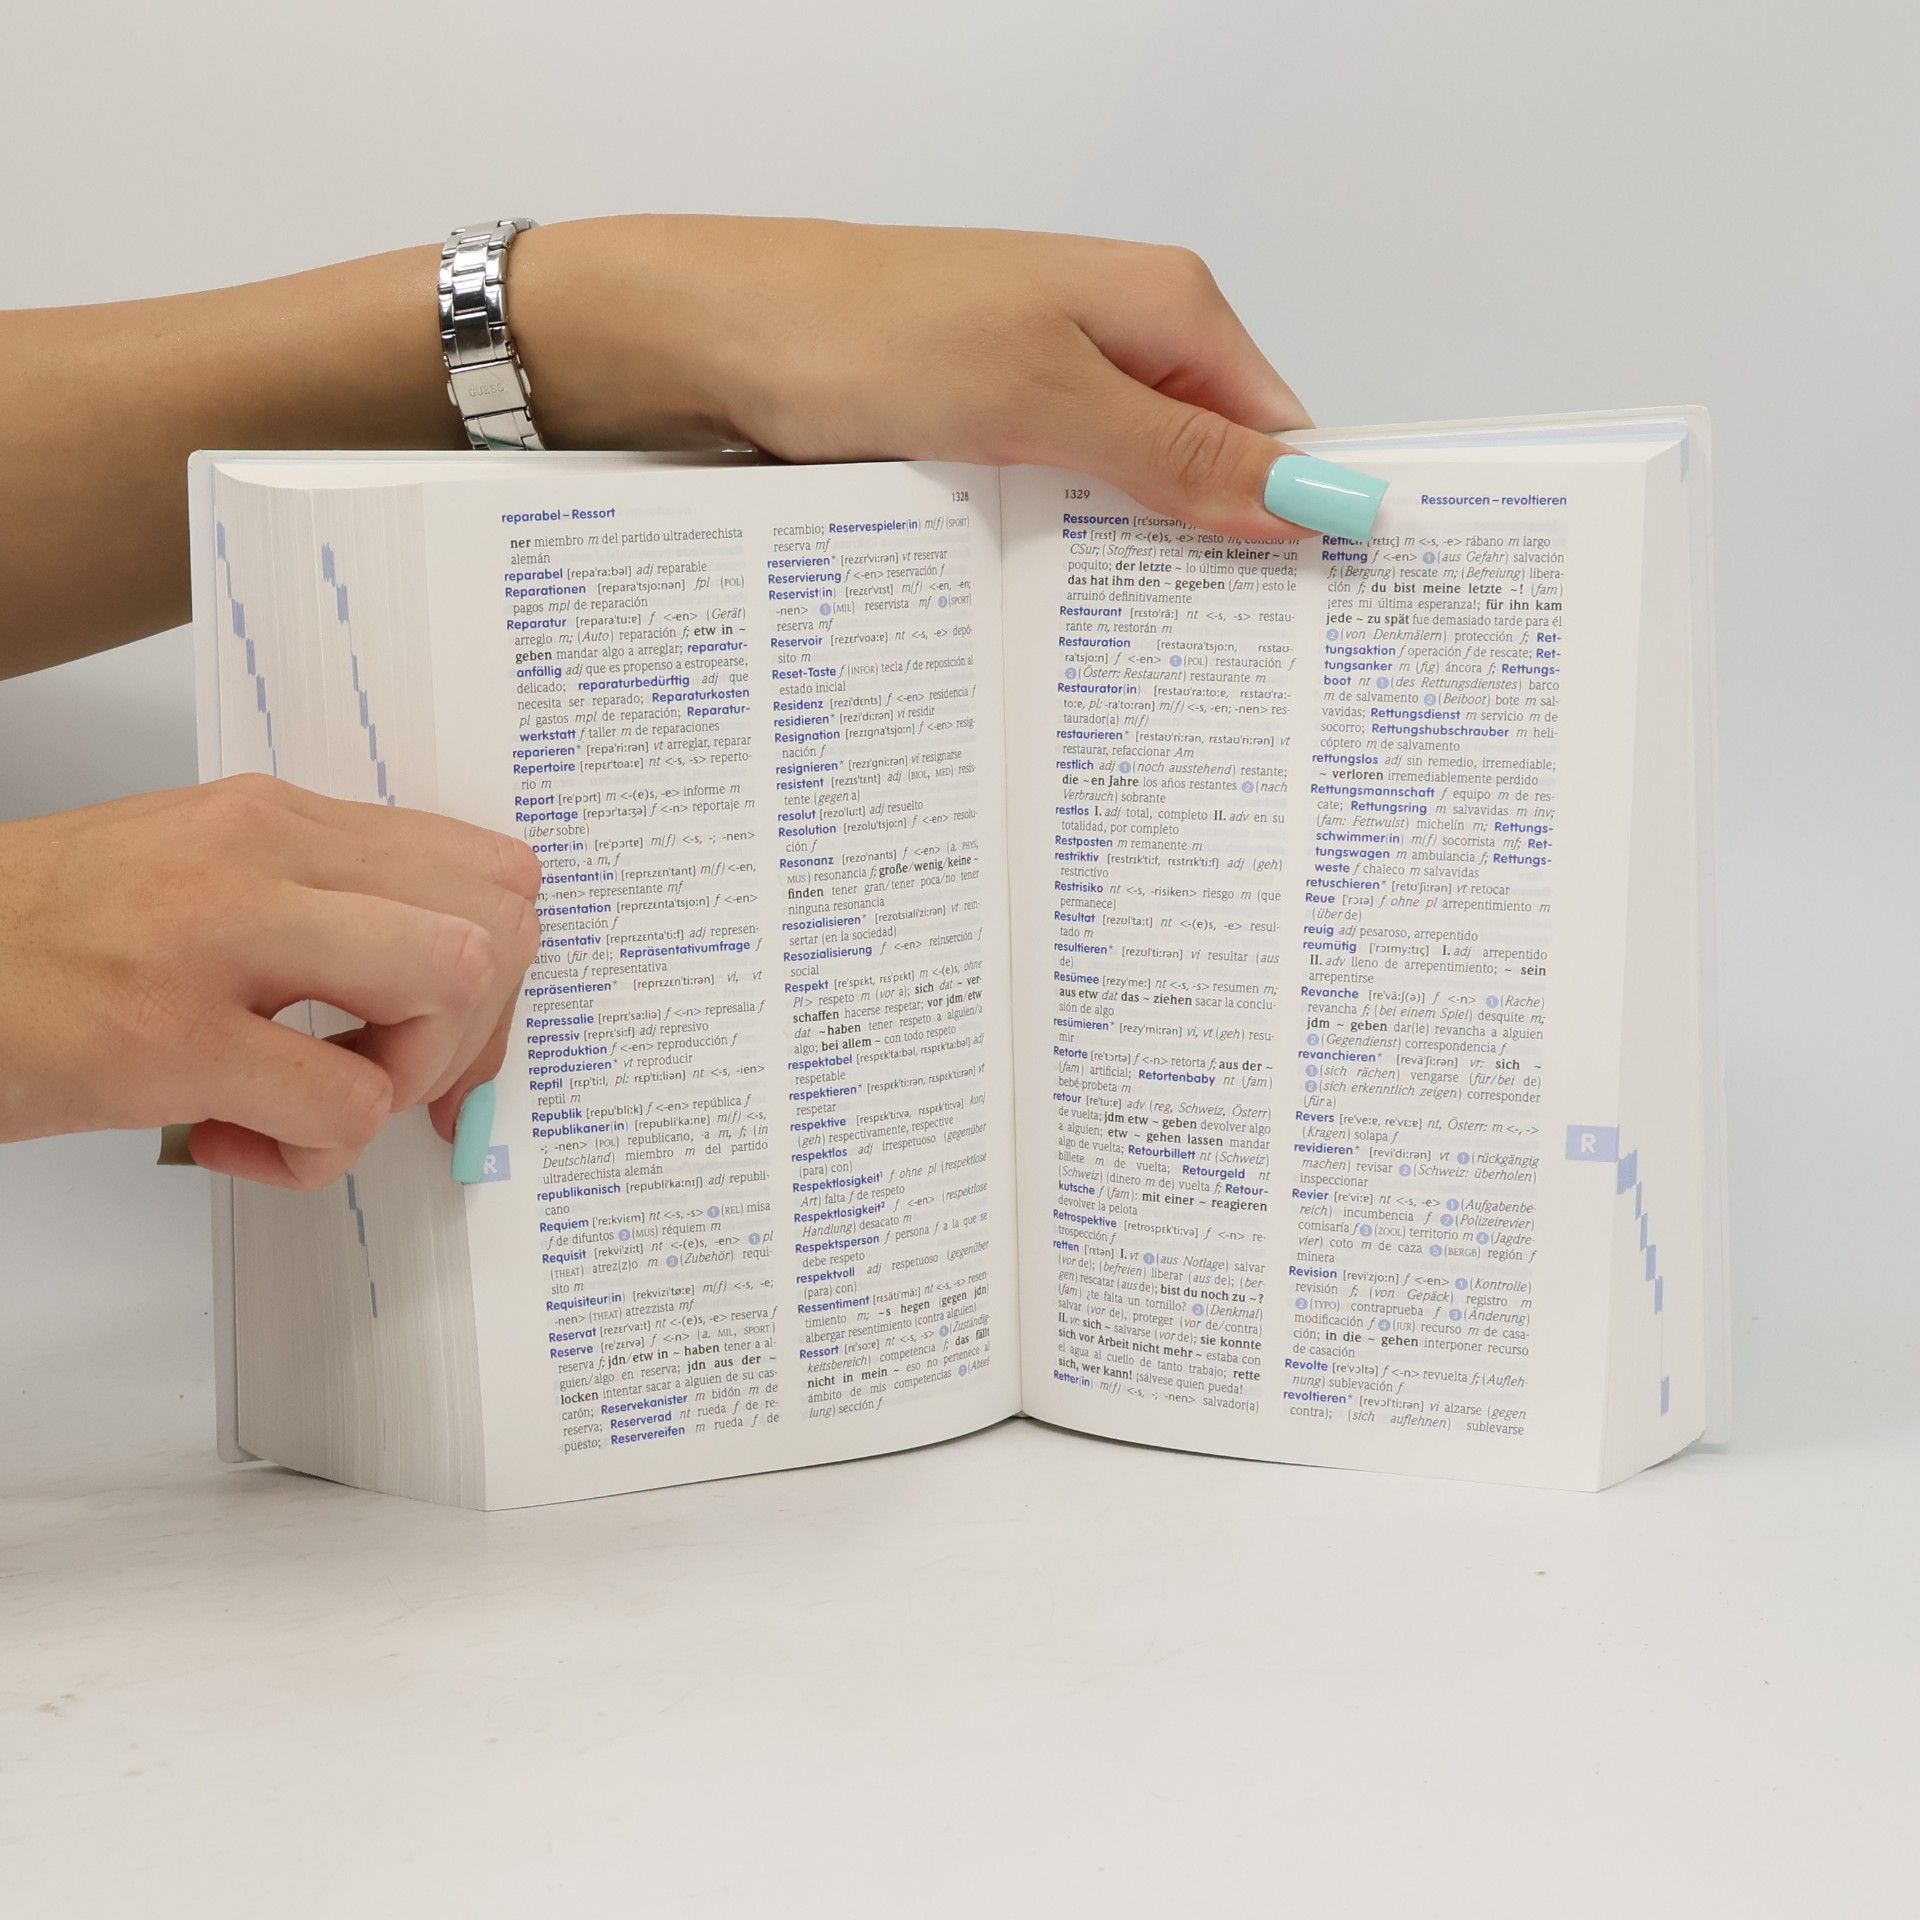 GUESS
reparabel – Ressort
1328
ner miembro m del partido ultraderechista
alemán
reparabel [repa'ra:bəl] adj reparable
Reparationen [repara'tsjo:nən] fpl (POL)
pagos mpl de reparación
Reparatur [repara'tu:ɐ] f <-en> (Gerät)
arreglo m; (Auto) reparación f; etw in ~
geben mandar algo a arreglar; reparatur-
anfällig adj que es propenso a estropearse,
delicado; reparaturbedürftig adj que
necesita ser reparado; Reparaturkosten
pl gastos mpl de reparación; Reparatur-
werkstatt f taller m de reparaciones
reparieren* [repa'ri:rən] vt arreglar, reparar
Repertoire [repɛr'toa:ɐ] nt <-s, -s> reperto-
rio m
Report [re'pɔrt] m <-(e)s, -e> informe m
Reportage [repɔr'ta:ʒə] f <-n> reportaje m
(über sobre)
porter(in) [re'pɔrtɐ] m(f) <-s, -; -nen>
portero, -a m, f
räsentant(in) [reprɛzɛn'tant] m(f) <-en,
-nen> representante mf
präsentation [reprɛzɛnta'tsjo:n] f <-en>
presentación f
räsentativ [reprɛzɛnta'ti:f] adj represen-
ativo (für de); Repräsentativumfrage f
encuesta f representativa
repräsentieren* [reprɛzɛn'ti:rən] vi, vt
representar
Repressalie [reprɛ'sa:liə] f <-n> represalia f
repressiv [reprɛ'si:f] adj represivo
Reproduktion f <-en> reproducción f
reproduzieren* vt reproducir
Reptil [rɛp'ti:l, pl: rɛp'ti:liən] nt <-s, -ien>
reptil m
Republik [repu'bli:k] f <-en> república f
Republikaner(in) [republi'ka:nɐ] m(f) <-s,
-; -nen> (POL) republicano, -a m, f; (in
Deutschland) miembro m del partido
ultraderechista alemán
R
republikanisch [republi'ka:nɪʃ] adj republi-
cano
Requiem ['re:kviɛm] nt <-s, -s> 1 (REL) misa
f de difuntos 2 (MUS) réquiem m
Requisit [rekvi'zi:t] nt <-(e)s, -en> 1 pl
(THEAT) atrez(z)o m 2 (Zubehör) requi-
sito m
Requisiteur(in) [rekvizi'tø:ɐ] m(f) <-s, -e;
-nen> (THEAT) atrezzista mf
Reservat [rezɛr'va:t] nt <-(e)s, -e> reserva f
Reserve [re'zɛrvə] f <-n> (a. MIL, SPORT)
reserva f; jdn/etw in ~ haben tener a al-
guien/algo en reserva; jdn aus der ~
locken intentar sacar a alguien de su cas-
carón; Reservekanister m bidón m de
reserva; Reserverad nt rueda f de re-
puesto; Reservereifen m rueda f de
recambio; Reservespieler(in) m(f) (SPORT)
reserva mf
reservieren* [rezɛr'vi:rən] vt reservar
Reservierung f <-en> reservación f
Reservist(in) [rezɛr'vɪst] m(f) <-en, -en;
-nen> 1 (MIL) reservista mf 2 (SPORT)
reserva mf
Reservoir [rezɛr'voa:ɐ] nt <-s, -e> depó-
sito m
Reset-Taste f (INFOR) tecla f de reposición al
estado inicial
Residenz [rezi'dɛnts] f <-en> residencia f
residieren* [rezi'di:rən] vi residir
Resignation [rezɪgna'tsjo:n] f <-en> resig-
nación f
resignieren* [rezɪ'gni:rən] vi resignarse
resistent [rezɪs'tɛnt] adj (BIOL, MED) resis-
tente (gegen a)
resolut [rezo'lu:t] adj resuelto
Resolution [rezolu'tsjo:n] f <-en> resolu-
ción f
Resonanz [rezo'nants] f <-en> (a. PHYS,
MUS) resonancia f; große/wenig/keine ~
finden tener gran/tener poca/no tener
ninguna resonancia
resozialisieren* [rezotsiali'zi:rən] vt rein-
sertar (en la sociedad)
Resozialisierung f <-en> reinserción f
social
Respekt [re'spɛkt, rɛs'pɛkt] m <-(e)s, ohne
Pl> respeto m (vor a); sich dat ~ ver-
schaffen hacerse respetar; vor jdm/etw
dat ~ haben tener respeto a alguien/a
algo; bei allem ~ con todo respeto
respektabel [respɛk'ta:bəl, rɛspɛk'ta:bəl] adj
respetable
respektieren* [respɛk'ti:rən, rɛspɛk'ti:rən] vt
respetar
respektive [respɛk'ti:və, rɛspɛk'ti:və] konj
(geh) respectivamente, respective
respektlos adj irrespetuoso (gegenüber
(para) con)
Respektlosigkeit¹ f ohne pl (respektlose
Art) falta f de respeto
Respektlosigkeit² f <-en> (respektlose
Handlung) desacato m
Respektsperson f persona f a la que se
debe respeto
respektvoll adj respetuoso (gegenüber
(para) con)
Ressentiment [rɛsãti'mã:] nt <-s, -s> resen-
timiento m; ~s hegen (gegen jdn)
albergar resentimiento (contra alguien)
Ressort [rɛ'so:ɐ] nt <-s, -s> 1 (Zuständig-
keitsbereich) competencia f; das fällt
nicht in mein ~ eso no pertenece al
ámbito de mis competencias 2 (Abtei-
lung) sección f
1329
Ressourcen – revoltieren
Ressourcen [rɛ'sʊrsən]
Rest [rɛst] m <-(e)s, -e> resto m, concho m
CSur; (Stoffrest) retal m; ein kleiner ~ un
poquito; der letzte ~ lo último que queda;
das hat ihm den ~ gegeben (fam) esto le
arruinó definitivamente
Restaurant [rɛsto'rã:] nt <-s, -s> restau-
rante m, restorán m
Restauration [restaura'tsjo:n, rɛstau-
ra'tsjo:n] f <-en> 1 (POL) restauración f
2 (Österr: Restaurant) restaurante m
Restaurator(in) [restau'ra:to:ɐ, rɛstau'ra:-
to:ɐ, pl: -ra'to:rən] m(f) <-s, -en; -nen> res-
taurador(a) m(f)
restaurieren* [restau'ri:rən, rɛstau'ri:rən] vt
restaurar, refaccionar Am
restlich adj 1 (noch ausstehend) restante;
die ~en Jahre los años restantes 2 (nach
Verbrauch) sobrante
restlos I. adj total, completo II. adv en su
totalidad, por completo
Restposten m remanente m
restriktiv [restrɪk'ti:f, rɛstrɪk'ti:f] adj (geh)
restrictivo
Restrisiko nt <-s, -risiken> riesgo m (que
permanece)
Resultat [rezʊl'ta:t] nt <-(e)s, -e> resul-
tado m
resultieren* [rezʊl'ti:rən] vi resultar (aus
de)
Resümee [rezy'me:] nt <-s, -s> resumen m;
aus etw dat das ~ ziehen sacar la conclu-
sión de algo
resümieren* [rezy'mi:rən] vi, vt (geh) resu-
mir
Retorte [re'tɔrtə] f <-n> retorta f; aus der ~
(fam) artificial; Retortenbaby nt (fam)
bebé-probeta m
retour [re'tu:ɐ] adv (reg, Schweiz, Österr)
de vuelta; jdm etw ~ geben devolver algo
a alguien; etw ~ gehen lassen mandar
algo de vuelta; Retourbillett nt (Schweiz)
billete m de vuelta; Retourgeld nt
(Schweiz) (dinero m de) vuelta f; Retour-
kutsche f (fam): mit einer ~ reagieren
devolver la pelota
Retrospektive [retrospɛk'ti:və] f <-n> re-
trospección f
retten ['rɛtən] I. vt 1 (aus Notlage) salvar
(vor de); (befreien) liberar (aus de); (ber-
gen) rescatar (aus de); bist du noch zu ~?
(fam) ¿te falta un tornillo? 2 (Denkmal)
salvar (vor de), proteger (vor de/contra)
II. vr: sich ~ salvarse (vor de); sie konnte
sich vor Arbeit nicht mehr ~ estaba con
el agua al cuello de tanto trabajo; rette
sich, wer kann! ¡sálvese quien pueda!
Retter(in) m(f) <-s, -; -nen> salvador(a)
Rettich ['rɛtɪç] m <-s, -e> rábano m largo
Rettung f <-en> 1 (aus Gefahr) salvación
f; (Bergung) rescate m; (Befreiung) libera-
ción f; du bist meine letzte ~! (fam)
¡eres mi última esperanza!; für ihn kam
jede ~ zu spät fue demasiado tarde para él
2 (von Denkmälern) protección f; Ret-
tungsaktion f operación f de rescate; Ret-
tungsanker m (fig) áncora f; Rettungs-
boot nt 1 (des Rettungsdienstes) barco
m de salvamento 2 (Beiboot) bote m sal-
vavidas; Rettungsdienst m servicio m de
socorro; Rettungshubschrauber m heli-
cóptero m de salvamento
rettungslos adj sin remedio, irremediable;
~ verloren irremediablemente perdido
Rettungsmannschaft f equipo m de res-
cate; Rettungsring m salvavidas m inv;
(fam: Fettwulst) michelín m; Rettungs-
schwimmer(in) m(f) socorrista mf; Ret-
tungswagen m ambulancia f; Rettungs-
weste f chaleco m salvavidas
retuschieren* [retʊ'ʃi:rən] vt retocar
Reue ['rɔɪə] f ohne pl arrepentimiento m
(über de)
reuig adj pesaroso, arrepentido
reumütig ['rɔɪmy:tɪç] I. adj arrepentido
II. adv lleno de arrepentimiento; ~ sein
arrepentirse
Revanche [re'vã:ʃ(ə)] f <-n> 1 (Rache)
revancha f; (bei einem Spiel) desquite m;
jdm ~ geben dar(le) revancha a alguien
2 (Gegendienst) correspondencia f
revanchieren* [revã'ʃi:rən] vr: sich ~
1 (sich rächen) vengarse (für/bei de)
2 (sich erkenntlich zeigen) corresponder
(für a)
Revers [re've:ɐ, re'vɛ:ɐ] nt, Österr: m <-, ->
(Kragen) solapa f
R
revidieren* [revi'di:rən] vt 1 (rückgängig
machen) revisar 2 (Schweiz: überholen)
inspeccionar
Revier [re'vi:ɐ] nt <-s, -e> 1 (Aufgabenbe-
reich) incumbencia f 2 (Polizeirevier)
comisaría f 3 (ZOOL) territorio m 4 (Jagdre-
vier) coto m de caza 5 (BERGB) región f
minera
Revision [revi'zjo:n] f <-en> 1 (Kontrolle)
revisión f; (von Gepäck) registro m
2 (TYPO) contraprueba f 3 (Änderung)
modificación f 4 (JUR) recurso m de casa-
ción; in die ~ gehen interponer recurso
de casación
Revolte [re'vɔltə] f <-n> revuelta f; (Aufleh-
nung) sublevación f
revoltieren* [revɔl'ti:rən] vi alzarse (gegen
contra); (sich auflehnen) sublevarse